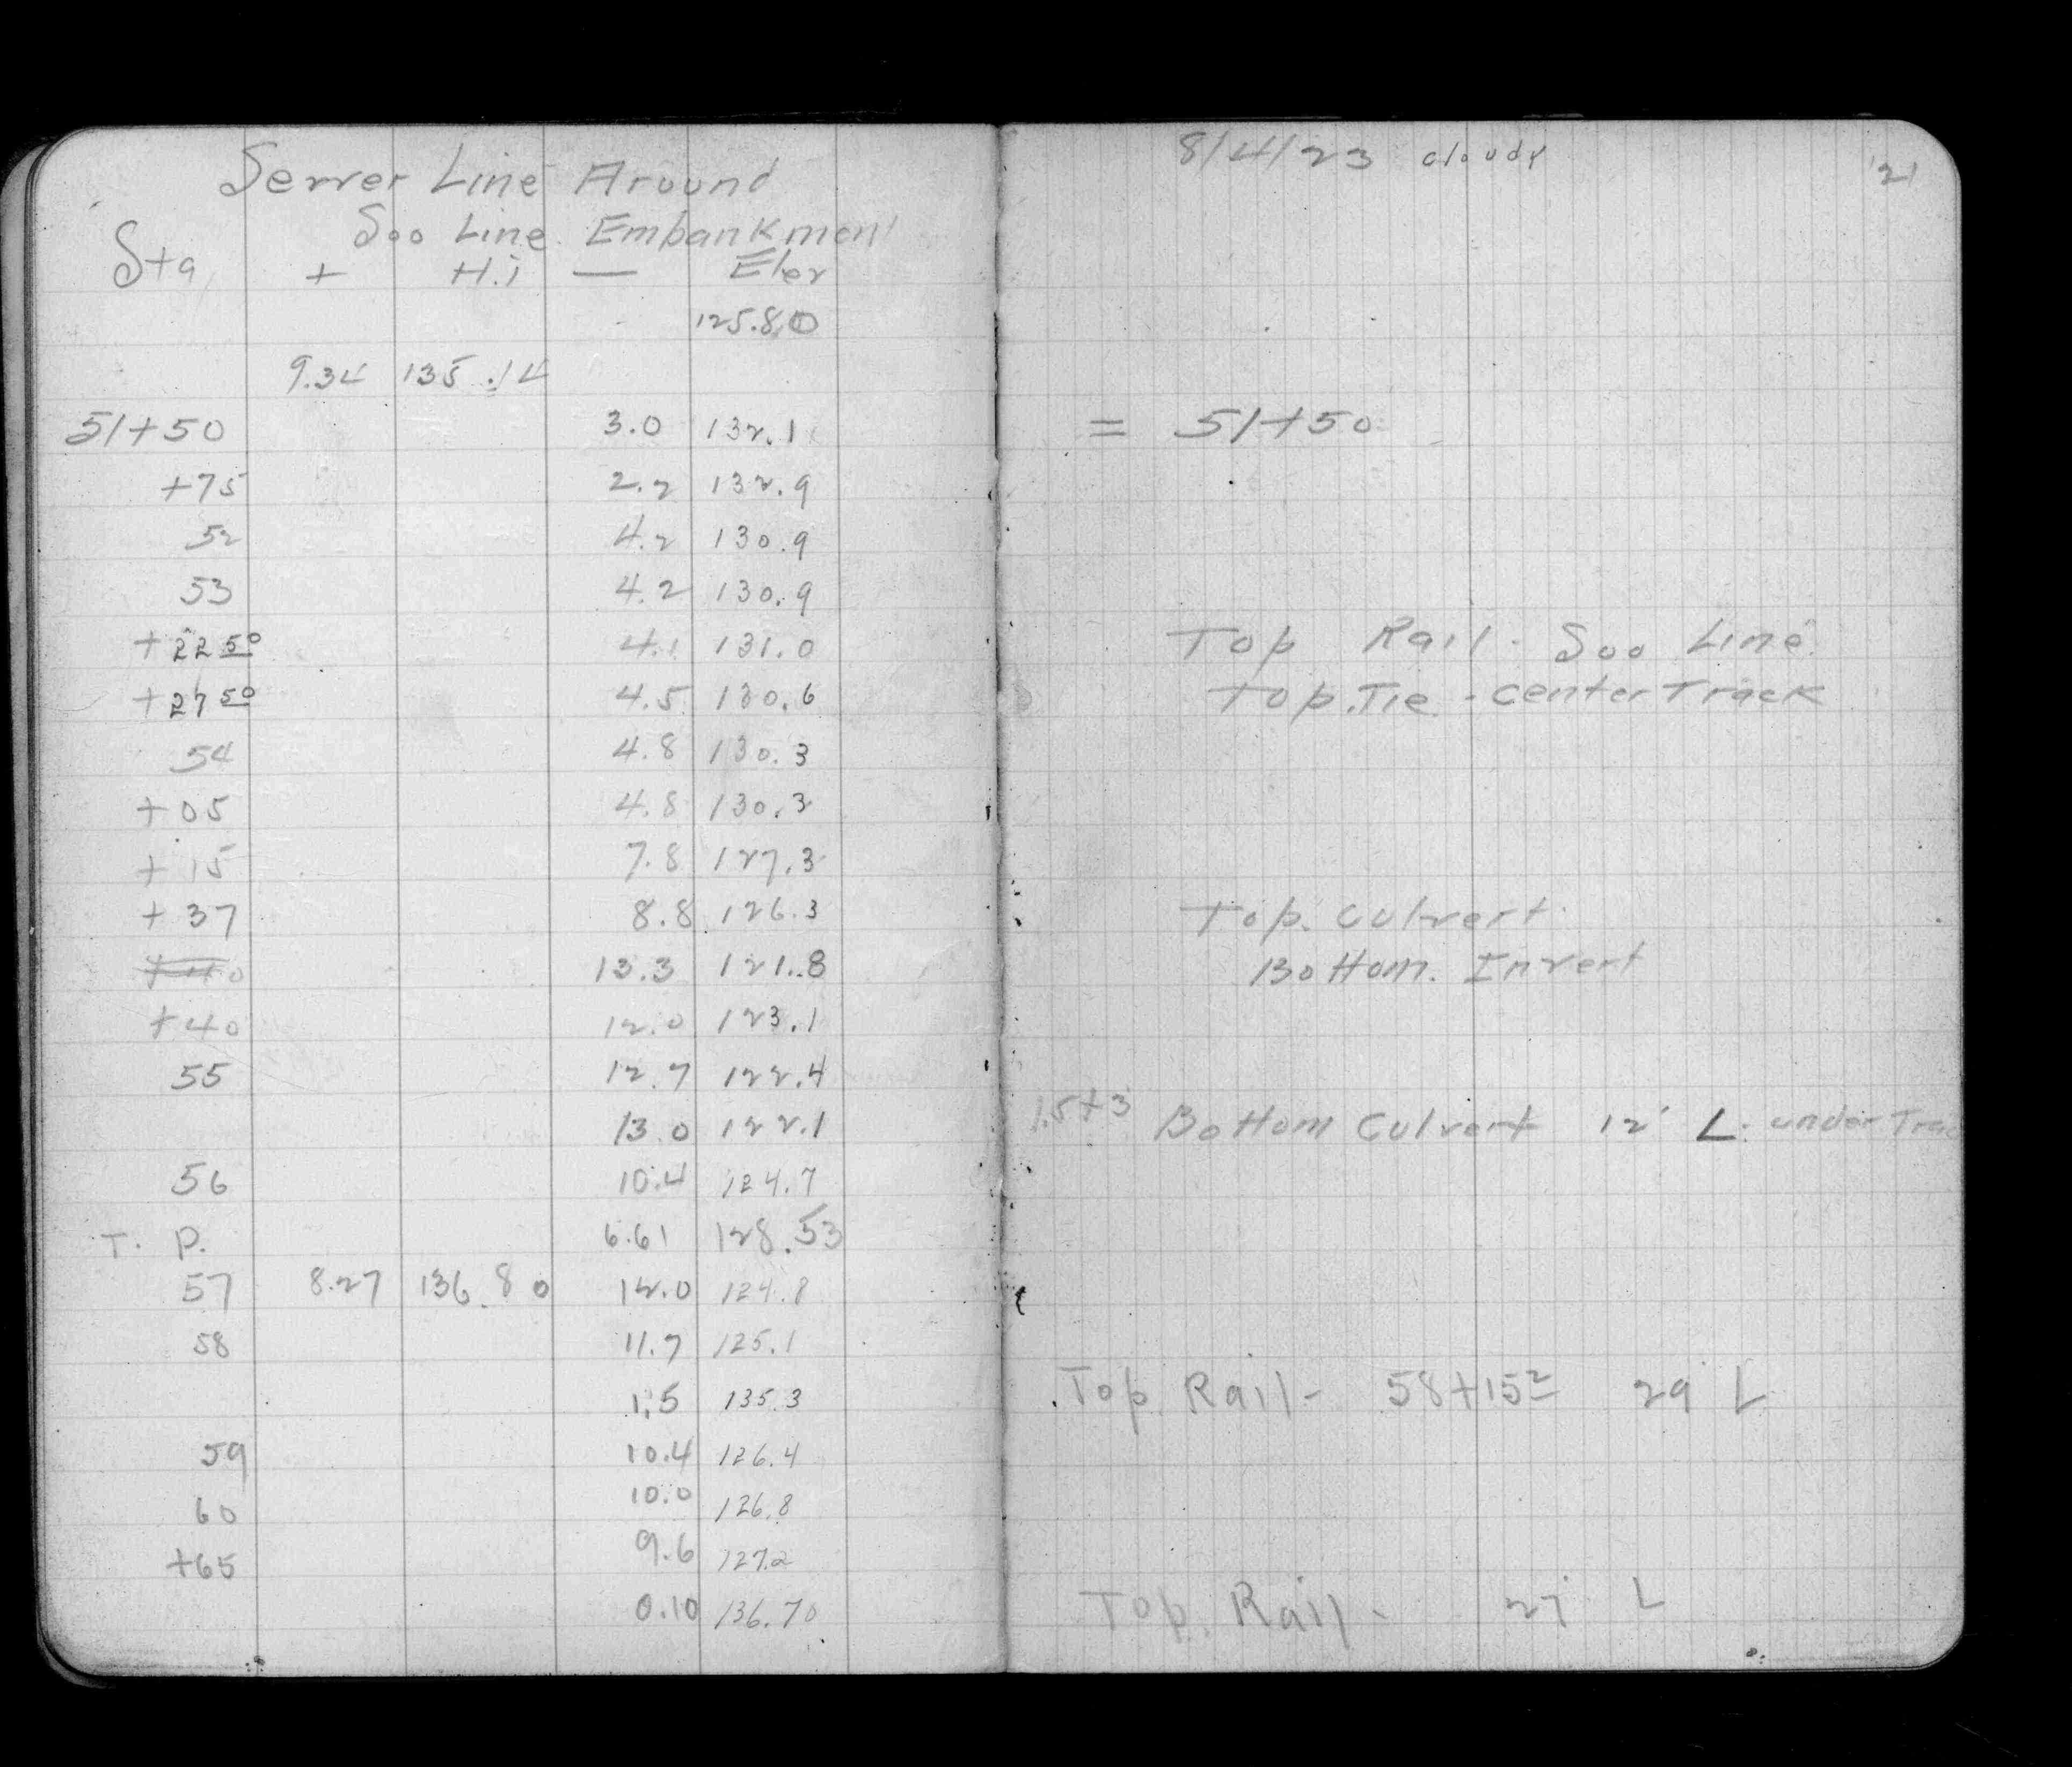 Sewer Line Around
Soo Line Embankment
Sta + H.i — Elev
125.80
9.34 135.14
51+50 3.0 132.1
+75 2.2 132.9
52 4.2 130.9
53 4.2 130.9
+22 50 4.1 131.0
+27 50 4.5 130.6
54 4.8 130.3
+05 4.8 130.3
+15 7.8 127.3
+37 8.8 126.3
+40 13.3 121.8
+40 12.0 123.1
55 12.7 122.4
13.0 122.1
56 10.4 124.7
T. P. 6.61 128.53
57 8.27 136.80 12.0 124.8
58 11.7 125.1
1.5 135.3
59 10.4 126.4
60 10.0 126.8
+65 9.6 127.2
0.10 136.70
8/4/23 cloudy 21
= 51+50
Top Rail - Soo Line
Top. Tie - center Track
Top. culvert
Bottom. Invert
Bottom Culvert 12' L. under Trac
Top Rail - 58+15 2 29' L
Top. Rail - 27' L